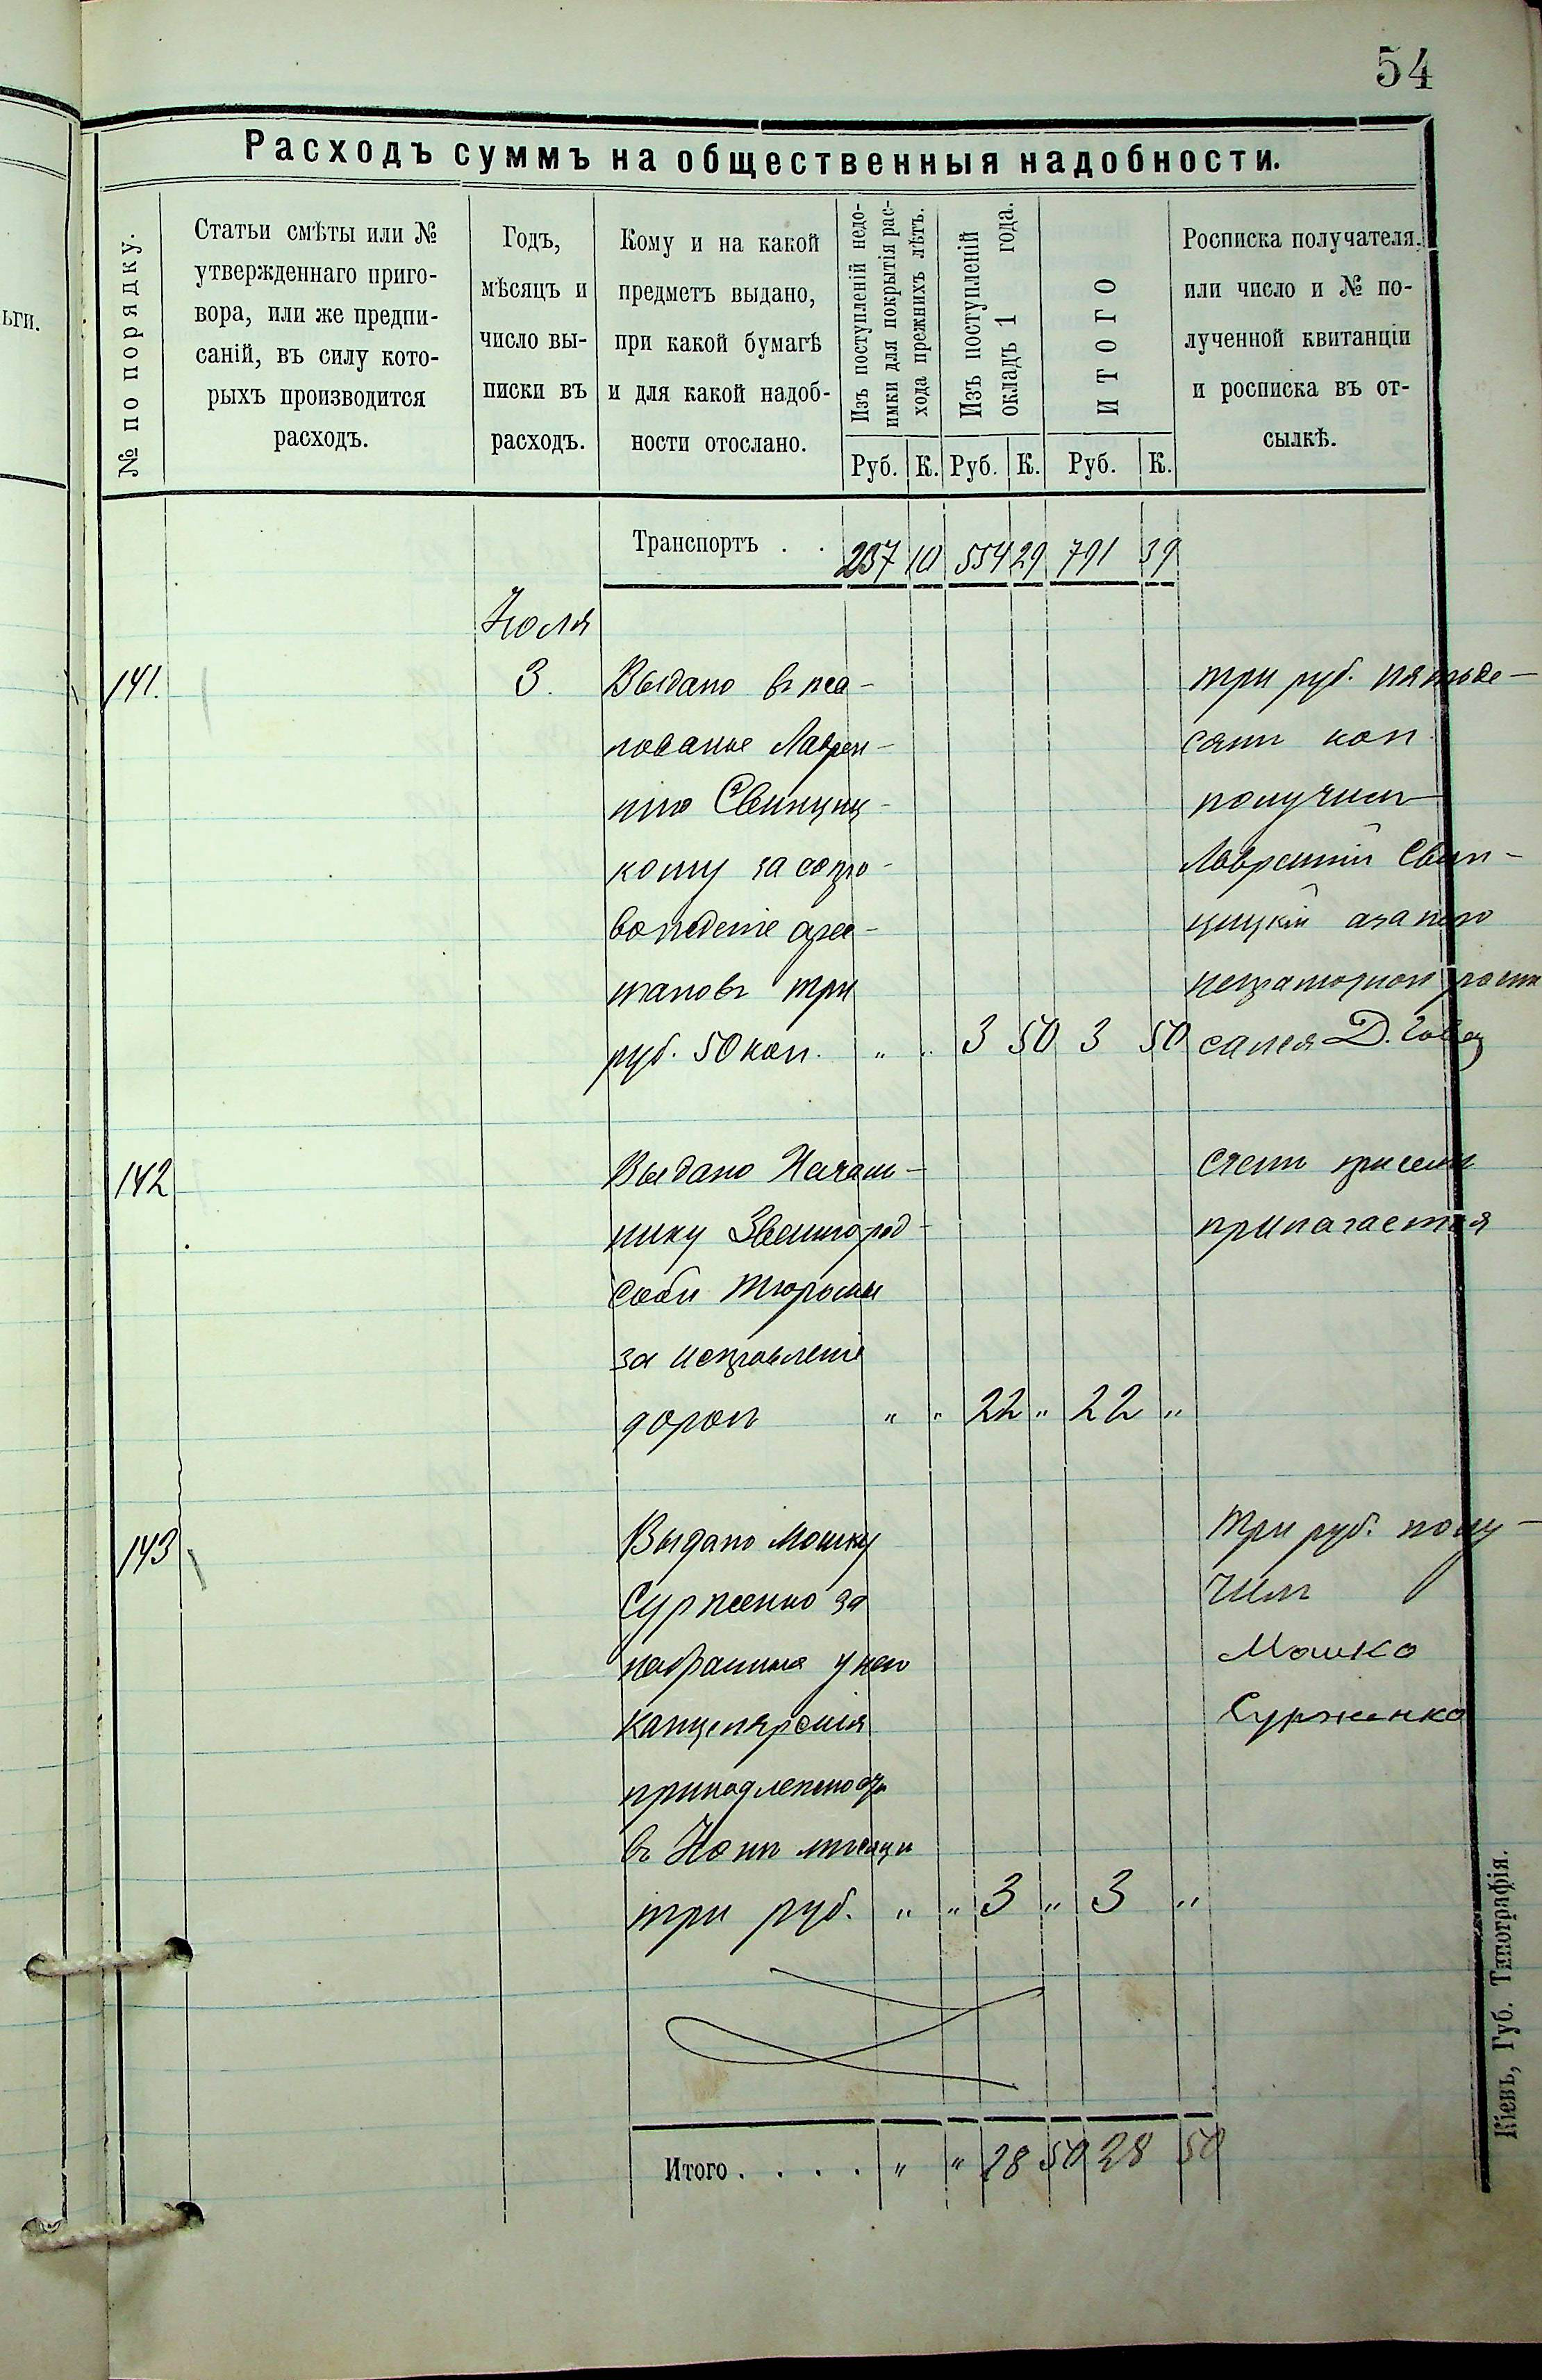 54
Расходъ суммъ на общественныя надобности.
№ по порядку.
Статьи смѣты или №
утвержденнаго приго-
вора, или же предпи-
саній, въ силу кото-
рыхъ производится
расходъ.
Годъ,
мѣсяцъ и
число вы-
писки въ
расходъ.
Кому и на какой
предметъ выдано,
при какой бумагѣ
и для какой надоб-
ности отослано.
Изъ поступленій недо-
имки для покрытія рас-
хода прежнихъ лѣтъ.
Изъ поступленій
окладъ 1 года.
ИТОГО
Росписка получателя.
или число и № по-
лученной квитанціи
и росписка въ от-
сылкѣ.
Руб. К. Руб. К. Руб. К.
ьги.
Транспортъ . . 237 10 554 29 791 39
Іюля
141. 3. Выдано в жа-
лованье Лаврен-
тію Свинциц-
кому за сопро-
вожденіе арес-
тановъ три
руб. 50 коп. " " 3 50 3 50
три руб. пятьде-
сятъ коп.
получилъ
Лаврентій Свин-
цицкій а за него
неграмотнаго роспи
сался Д.
142 Выдано Началь-
нику Звенигород-
ской тюрьмы
за исправленіе
дорогъ " " 22 " 22 "
Счетъ при семъ
прилагается
143 Выдано Мошку
Сурженко за
набранныя у него
канцелярскія
принадлежности
въ Іюнѣ мѣсяцѣ
три руб. " " 3 " 3 "
Три руб. полу-
чилъ
Мошко
Сурженко
Итого . . . . " " 28 50 28 50
Кіевъ, Губ. Типографія.